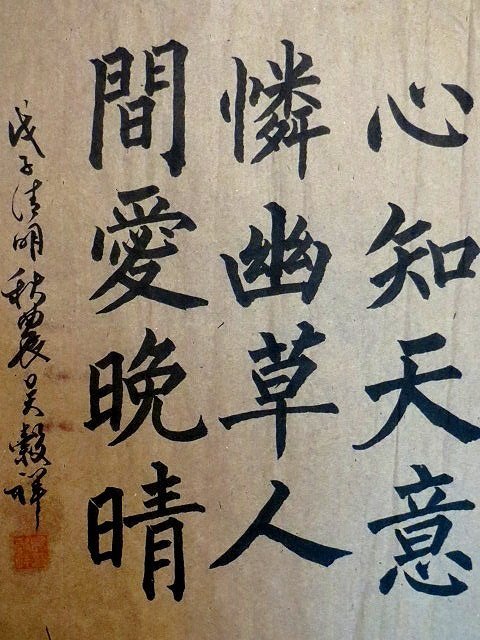 心知天意
憐幽草人
間愛晚晴
戊子清明秋農吳穀祥